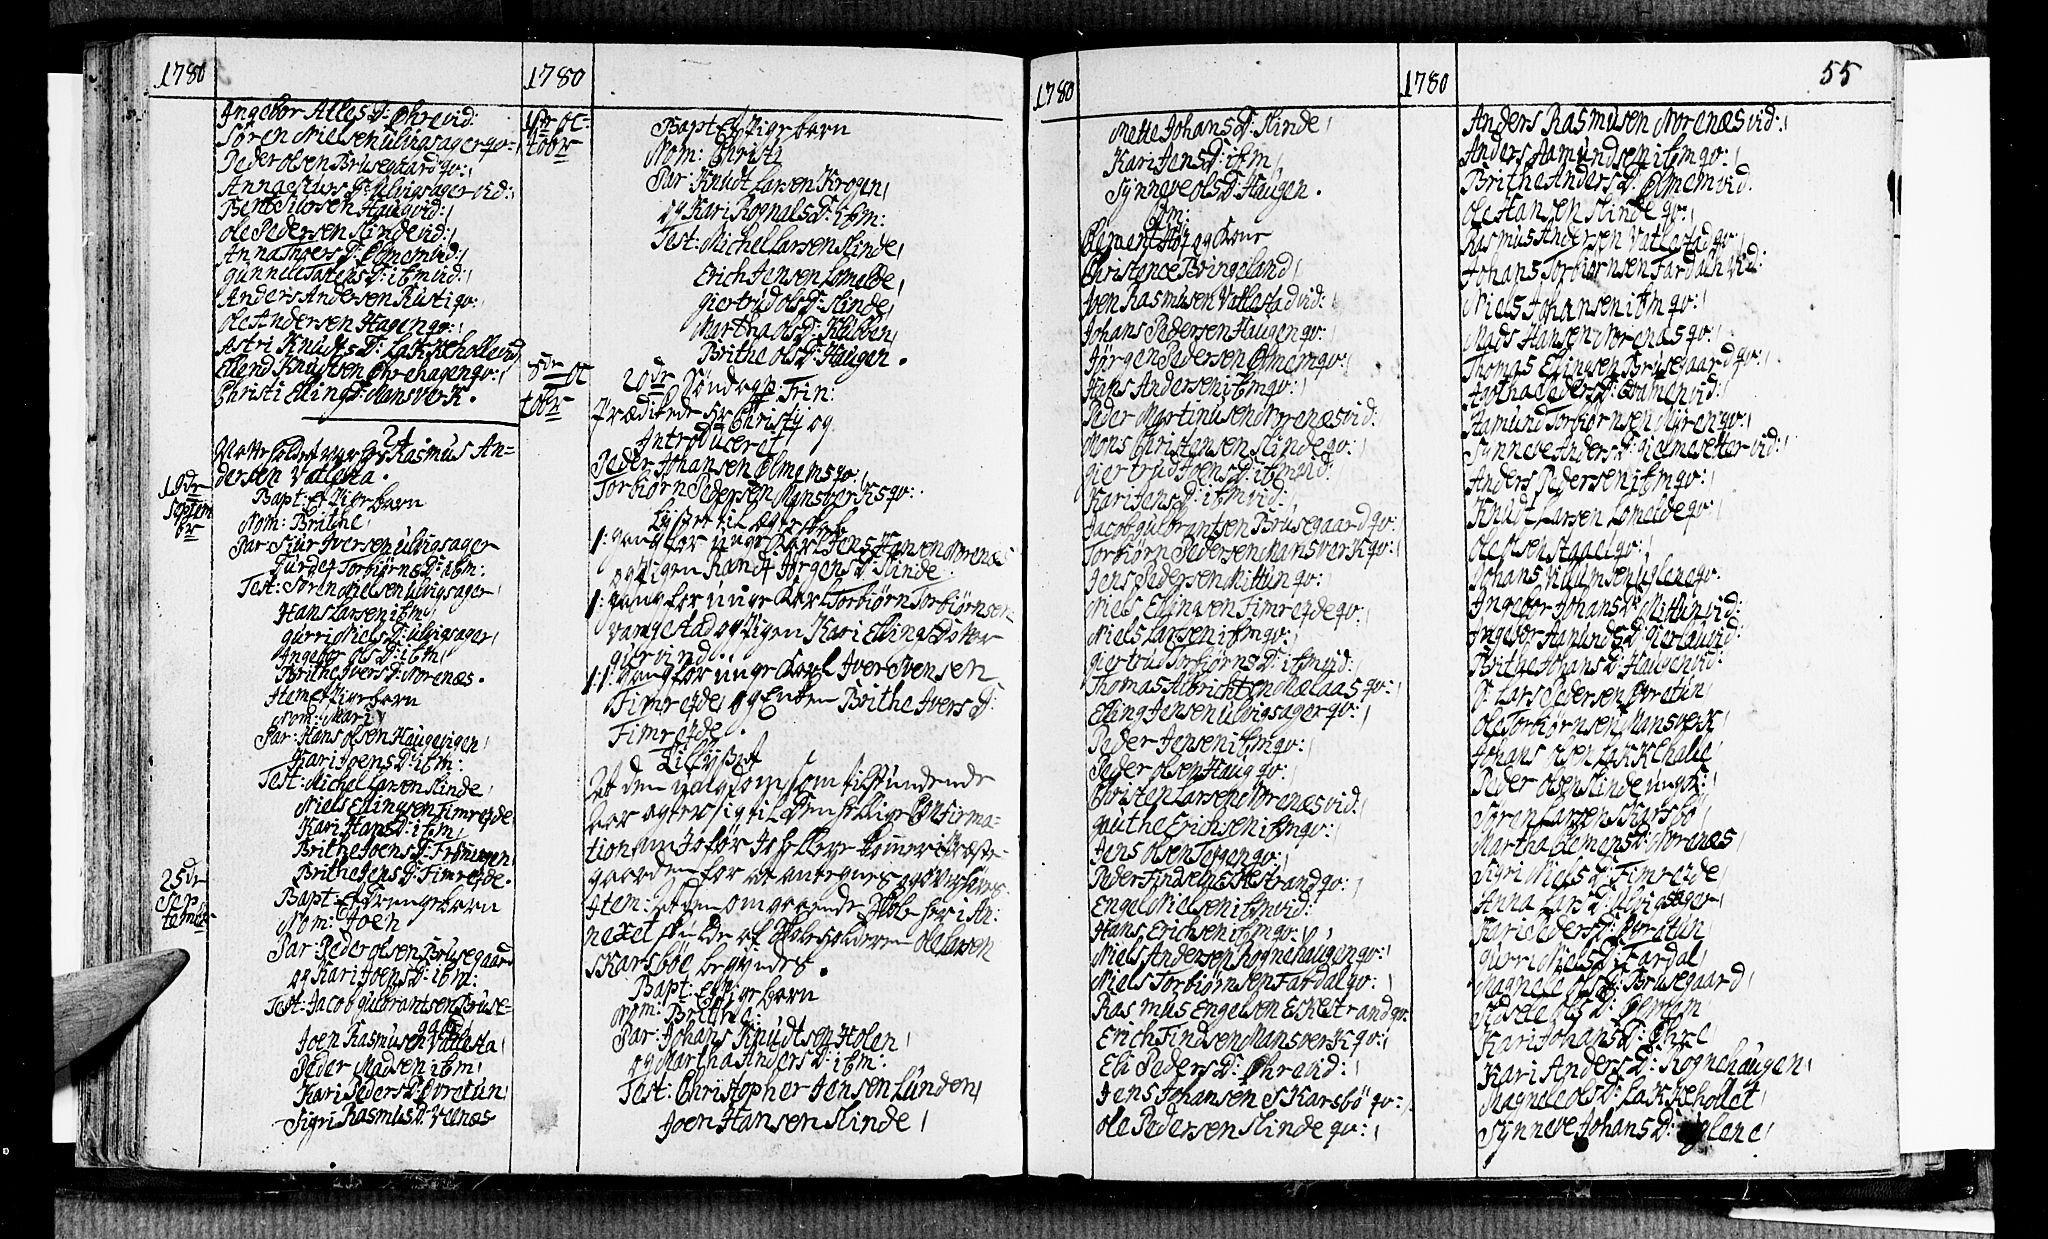 1780
Ingebor Atles D: Øhre vid:
Søren Nielsen ulvigsager qv:
Peder olsen Brusegaard qv:
Anna Siurs D: ulvigsager vid:
Bent Siursen Haug vid:
ole Pedersen Slinde vid:
Anna Thoers D: Ølmem vid:
gunnele D: ibm vid:
Anders Andersen Rusti qv:
ole Andersen Hagen qv:
Astri Knuds D: Lakkeholle vid
Ellend Knudsen Øhrehagen qv:
Christi Elling D: Mansverk.
Rasmus An=
dersen Vallesta.
19de
Septem
br
Bapt: Et Pigebarn
Nom: Brithe
Par: Siur Iversen ulvigsager
Gurde Torbiørns D: ibm:
Test: Søren Nielsen ulvigsager
Hans Larsen ibm
gurri Niels D: ulvigsager
Ingebor ols D: ibm
Brithe Ivers D: Norenæs.
Item Et Pigebarn
Nom: Mari
Par: Hans olsen Haugevigen
Kari Joens D: ibm:
Test: Michel Larsen Slinde
Niels Ellingsen Fimreite
Kari Hans D: ibm
Brithe Joens D:
Brithe Jens D: Fimreite.
25de
Sep
tembr
Bapt: Et Drengebarn
Nom: Joen
Par: Peder olsen Brusegaard
og Kari Joens D: ibm:
Test: Jacob gulbrantsen Bruse=
gaard
Joen Rasmusen Vallesta
Peder Madsen ibm
Kari Peders D: Evretun
Sigri Rasmus D: Veenæs
1780
1de oc:
tobr
Bapt: Et Pigebarn
Nom: Christi
Par: Knudt Larsen Krogen
og Kari Rognals D: ibm:
Test: Michel Larsen Slinde
Erich Jensen Lomelde
giertrud ols D: Slinde
Martha ols D: Klubben
Brithe ols D: Haugen.
8de oc
tobr
20de Søndag p: Trin:
Prædikede Hr Christy og
Introduceret
Peder Johansen Ølmems qv:
Torbiørn Pedersen Mansverks qv:
Lyst til Egteskab
1: gang for unge Karl Jens Hansen Norenæs
og Pigen Randi Jørgens D: Slinde.
1: gang for unge Karl Torbiørn Torbiørnsen
Vangestad og Pigen Kari Ellings Dotter
1: gang for unge Karl Iver Svensen
Fimreite og Enken Brithe Ivers D:
Fimreite.
Tillyst
At den som tilstundende
Aar agter sig til den hellige Confirma=
tion
for at antegnes og
Item: at den omgaaende Skole her i An:
nexet skulde af Skoleholderen ole Larsen
Skarsbøe begyndes.
Bapt: Et Pigebarn
Nom: Brithe:
Par: Johans Knudtsen Holen
og Martha Anders D: ibm:
Test: Christopher Jensen Lunden
Joen Hansen Slinde
1780
Mette Johans D: Slinde
Kari Jens D: ibm
Synneve ols D: Haugen.
Cfm:
Clement og Kone
Christence Bringeland
Joen Rasmusen Vallestad vid:
Johans Pedersen Haugen qv:
Jørgen Pedersen Ølmem qv:
Hans Andersen ibm qv:
Peder Martinusen Norenæs vid:
Mons Christensen Slinde qv:
giertrud Joens D: ibm vid:
Kari Jens D: ibm vid:
Jacob gulbrantsen Brusegaard qv:
Torbiørn Pedersen Mansverk qv:
Jens Pedersen Mittun qv:
Niels Ellingsen Fimreite qv:
Niels Larsen ibm qv:
giertrud Torbiørns D: ibm vid:
Thomas Albrichten Melaas qv:
Elling Jensen ulvigsager qv:
Peder Jensen ibm qv:
Peder olsen Haug qv:
Christen Larsen Norenæs vid:
gauthe Erichsen ibm qv:
Jens olsen qv:
Peder Findsen Eckestrand qv:
Engel Nielsen ibm vid:
Hans Erichsen ibm qv:
Niels Andersen Rognehaugen qv:
Niels Torbiørnsen Fardal qv:
Rasmus Engelsen Eckestrand qv:
Erich Findsen Mansverk qv:
Eli Peders D: Øhre vid:
Jens Johansen Skarsbø qv:
ole Pedersen Slinde qv:
1780
55
Anders Rasmusen Norenæs vid:
Anders Aamundsen ibm qv:
Brithe Anders D: Ølmem vid:
ole Hansen Slinde qv:
Rasmus Andersen Vallestad qv:
Johans Torbiørnsen Fardal vid:
Niels Johansen ibm qv:
Mads Hansen Norenæs qv:
Thomas Ellingsen Brusegaard qv:
Agatha Peders D: vid:
Aamund Torbiørnsen Myren qv:
Synneve Anders D: vid:
Anders Pedersen ibm qv:
Knudt Larsen Lomelde qv:
ole olsen Stggel qv:
Johans Villumsen uglene qv:
Ingebor Johans D: Mittun vid:
Ingebor Aamunds D: vid:
Brithe Johans D: Haugen vid:
D: Lars Pedersen Evretun
ole Torbiørnsen Mansverk
Johans olsen Lakkeholle
Peder olsen Slinde ungk:
Søren Larsen Skarsbø
Martha Clemens D: Norenæs
Sigri Niels D: Fimreite
Anna Lars D: ulvigsager
Kari Peders D: Evretun
gurri Niels D: Fardal
Magnele ols D: Brusegaard
Sidsele ols D: Ølmem
Kari Johans D: Øhre
Kari Anders D: Rognehaugen
Magnele ols D: Lakkehollet
Synneve Johans D: uglene